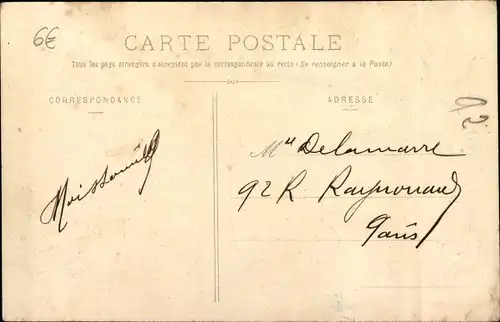 6€
CARTE POSTALE
Tous les pays étrangers n'acceptent pas la correspondance au recto (Se renseigner à la Poste)
CORRESPONDANCE
ADRESSE
92
Mlle Delamarre
92 R Raynouard
Paris